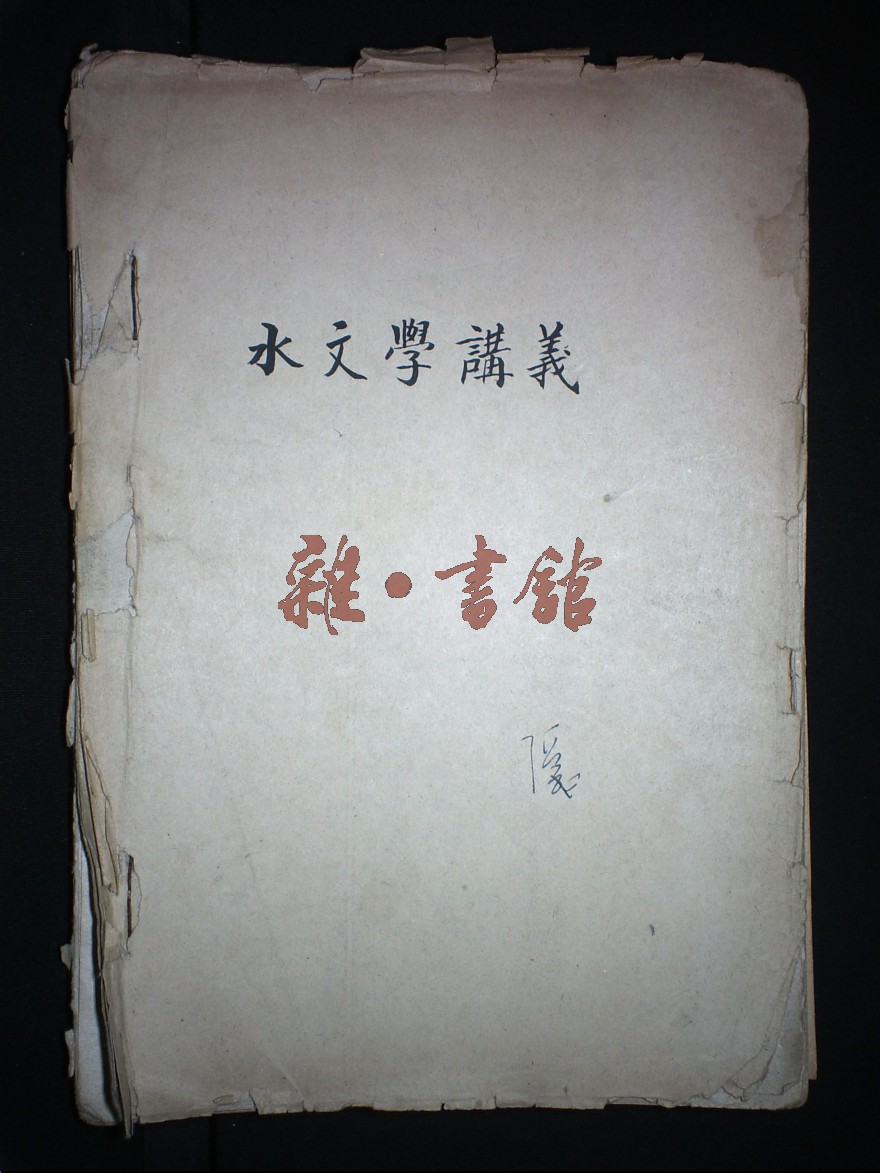 水文學講義
雜·書館